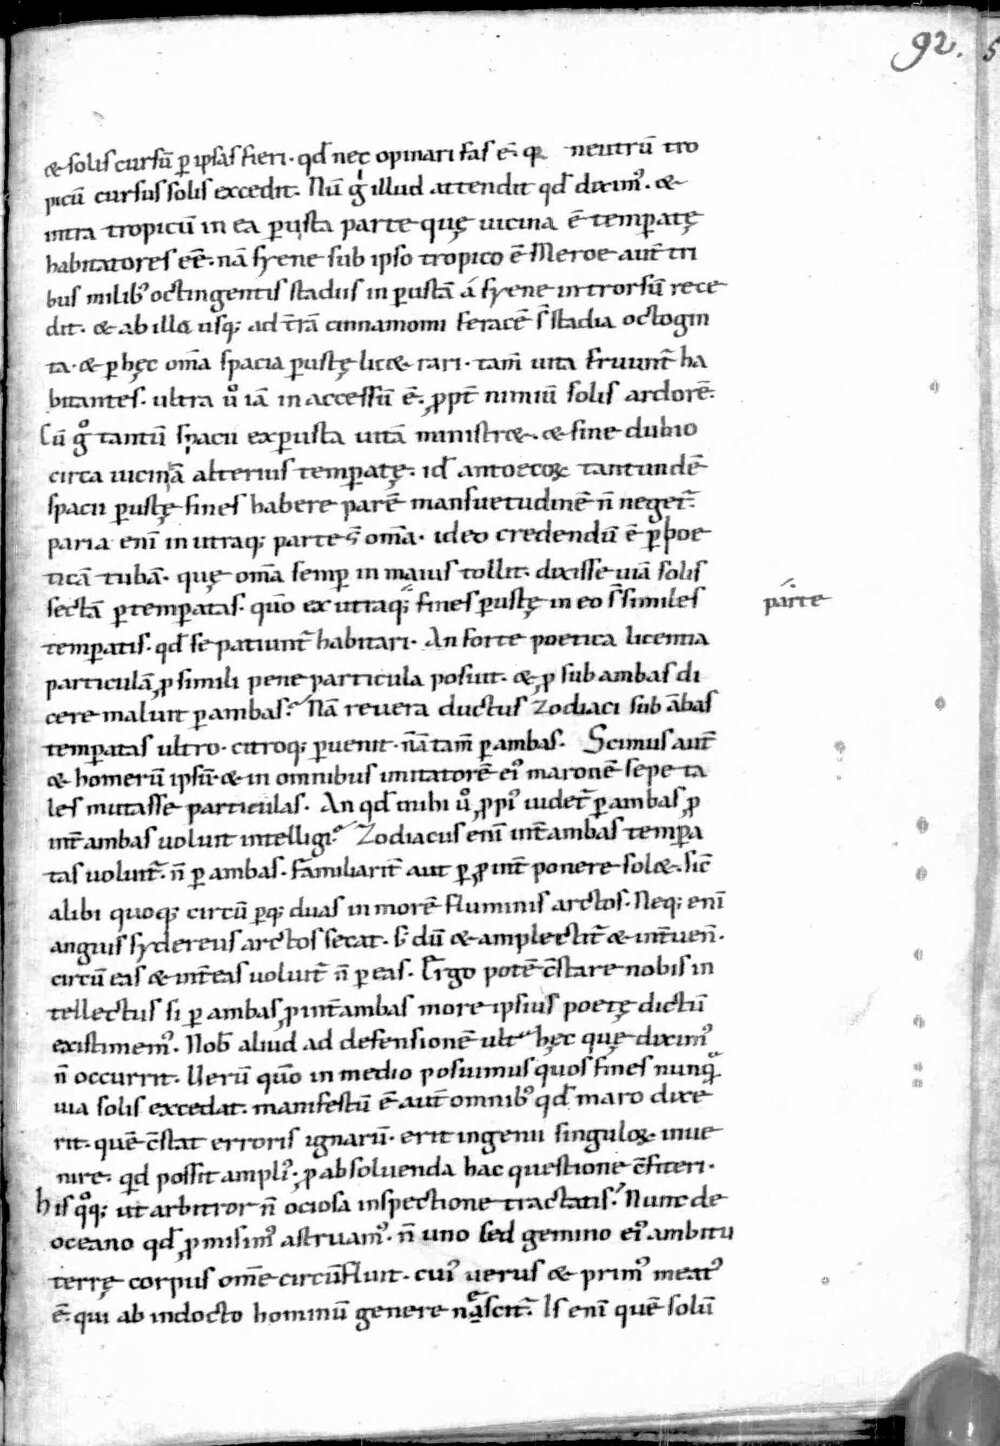 92.
& solis cursū ꝑ ipsas fieri· qd̄ nec opinari fas ē· qꝛ neutrū tro
picū cursus solis excedit. Nū g̊ illud attendit qd̄ dixim᾽· &
intra tropicū in ea ꝑusta parte quę uicina ē temꝑatę
habitatores eē· nā syene sub ipso tropico ē Meroe aut̄ tri
bus milib᾽ octingentis stadiis in ꝑustā a᾽ syene introrsū rece
dit· & ab illa usq; ad t̄rā cinnamomi feracē s̄ stadia octogin
ta· & ꝑ hęc om̄a spacia ꝑustę lic& rari· tam̄ uita fruunt̄ ha
bitantes· ultra u᾽ iā in accessū ē· ꝓpt̄ nimiū solis ardorē·
Cū g̊ tantū spacii ex ꝑusta uitā ministr&· & sine dubio
circa uicinā alterius temꝑatę· id ̄ antoecoꝝ tantundē
spacii ꝑustę fines habere parē mansuetudinē n̄ neget̄·
paria eni᾽ in utraq; parte s̄ om̄a· ideo credendū ē ꝑ poe
ticā tubā· quę om̄a semꝑ in maius tollit· dixisse uiā solis
sectā ꝑ temꝑatas· quō ex utraq; fines ꝑustę in eo s̄ similes
parte
temꝑatis· qd̄ se patiunt̄ habitari· An forte poetica licentia
particulā ꝓ simili pene particula posuit· & ꝓ sub ambas di
cere maluit ꝑ ambas? Nā reuera ductus zodiaci sub ābas
temꝑatas ultro· citroq; ꝑuenit· n̄ tam̄ ꝑ ambas· Scimus aut̄
& homerū ipsū· & in omnibus imitatorē ei᾽ maronē sepe ta
les mutasse particulas· An qd̄ mihi u᾽ ꝓpi᾽ uidet̄ ꝑ ambas ꝓ
int̄ ambas uoluit intelligi? Zodiacus eni᾽ int̄ ambas temꝑa
tas uoluit̄· n̄ ꝑ ambas· familiarit̄ aut̄ ꝑ ꝓ int̄ ponere sol&· sic̄
alibi quoq; circū ꝑq; duas in morē fluminis arctos· Neq; eni᾽
anguis sydereus arctos secat· s; dū & amplectit̄ & int̄uen̄·
circū eas & int̄ eas uoluit̄ n̄ ꝑ eas· Ergo potē c̄stare nobis in
tellectus si ꝑ ambas ꝓ int̄ ambas more ipsius poetę dictū
existimem᾽· Nob̄ aliud ad defensionē ult᾽ hęc quę dixim᾽
n̄ occurrit· Uerū quō in medio posuimus quos fines nunq̄
uia solis excedat· manifestū ē aut̄ omnib᾽ qd̄ maro dixe
rit· quē c̄stat erroris ignarū· erit ingenii singuloꝝ inue
nire· qid possit ampli᾽ ꝓ absoluenda hac questione c̄fiteri·
his qͦq; ut arbitror n̄ ociosa inspectione tractatis? Nunc de
oceano qd̄ ꝓmisim᾽ astruam᾽· n̄ uno sed gemino ei᾽ ambitu
terrę corpus om̄e circūfluit· cui᾽ uerus & prim᾽ meat᾽
ē· qui ab indocto hominū genere nascit̄· Is eni᾽ quē solū